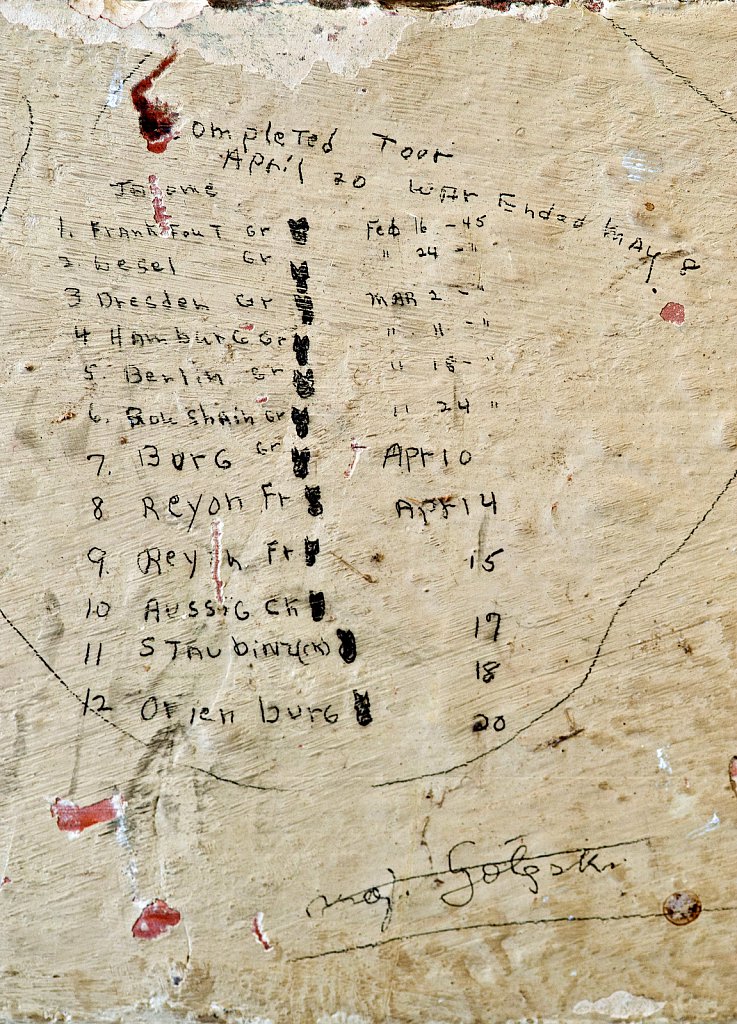 Completed Toor
April 20 War Ended May 8
1. Frankfout Gr Feb 16 - 45
2. Wesel Gr " 24 - "
3 Dresden Gr Mar 2 - "
4 Hamburg Gr " 11 - "
5. Berlin Gr " 18 - "
6. Gr " 24 "
7. Burg Gr Apr 10
8 Reyon Fr Apr 14
9. Reyon Fr 15
10 Aussig Ck 17
11 Staubinz (CK) 18
12 Orienburg 20